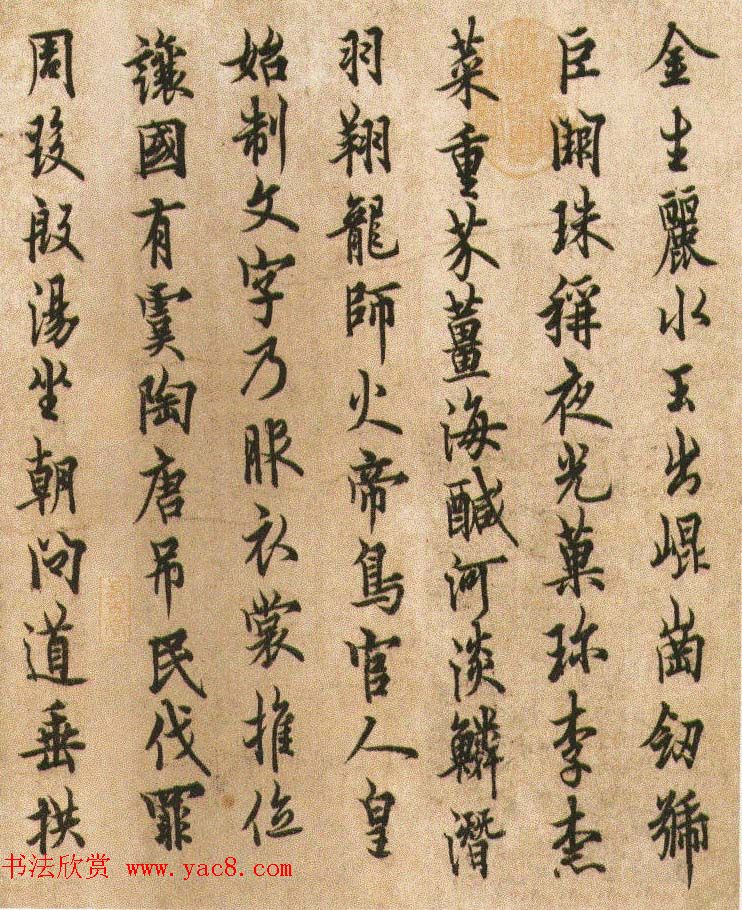 金生麗水玉出崐崗劒號
巨闕珠稱夜光菓珎李柰
菜重芥薑海醎河淡鱗潛
羽翔龍師火帝鳥官人皇
始制文字乃服衣裳推位
讓國有虞陶唐吊民伐罪
周發殷湯坐朝問道垂拱
书法欣赏 www.yac8.com